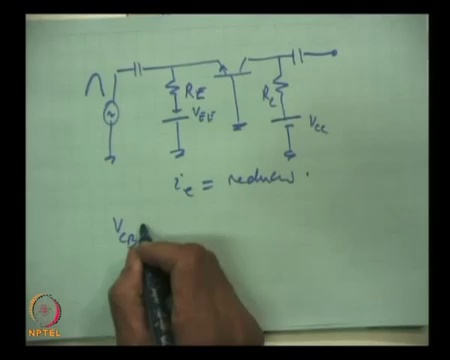 RE
VEE
RC
VCC
ie = reduces.
VCB
NPTEL